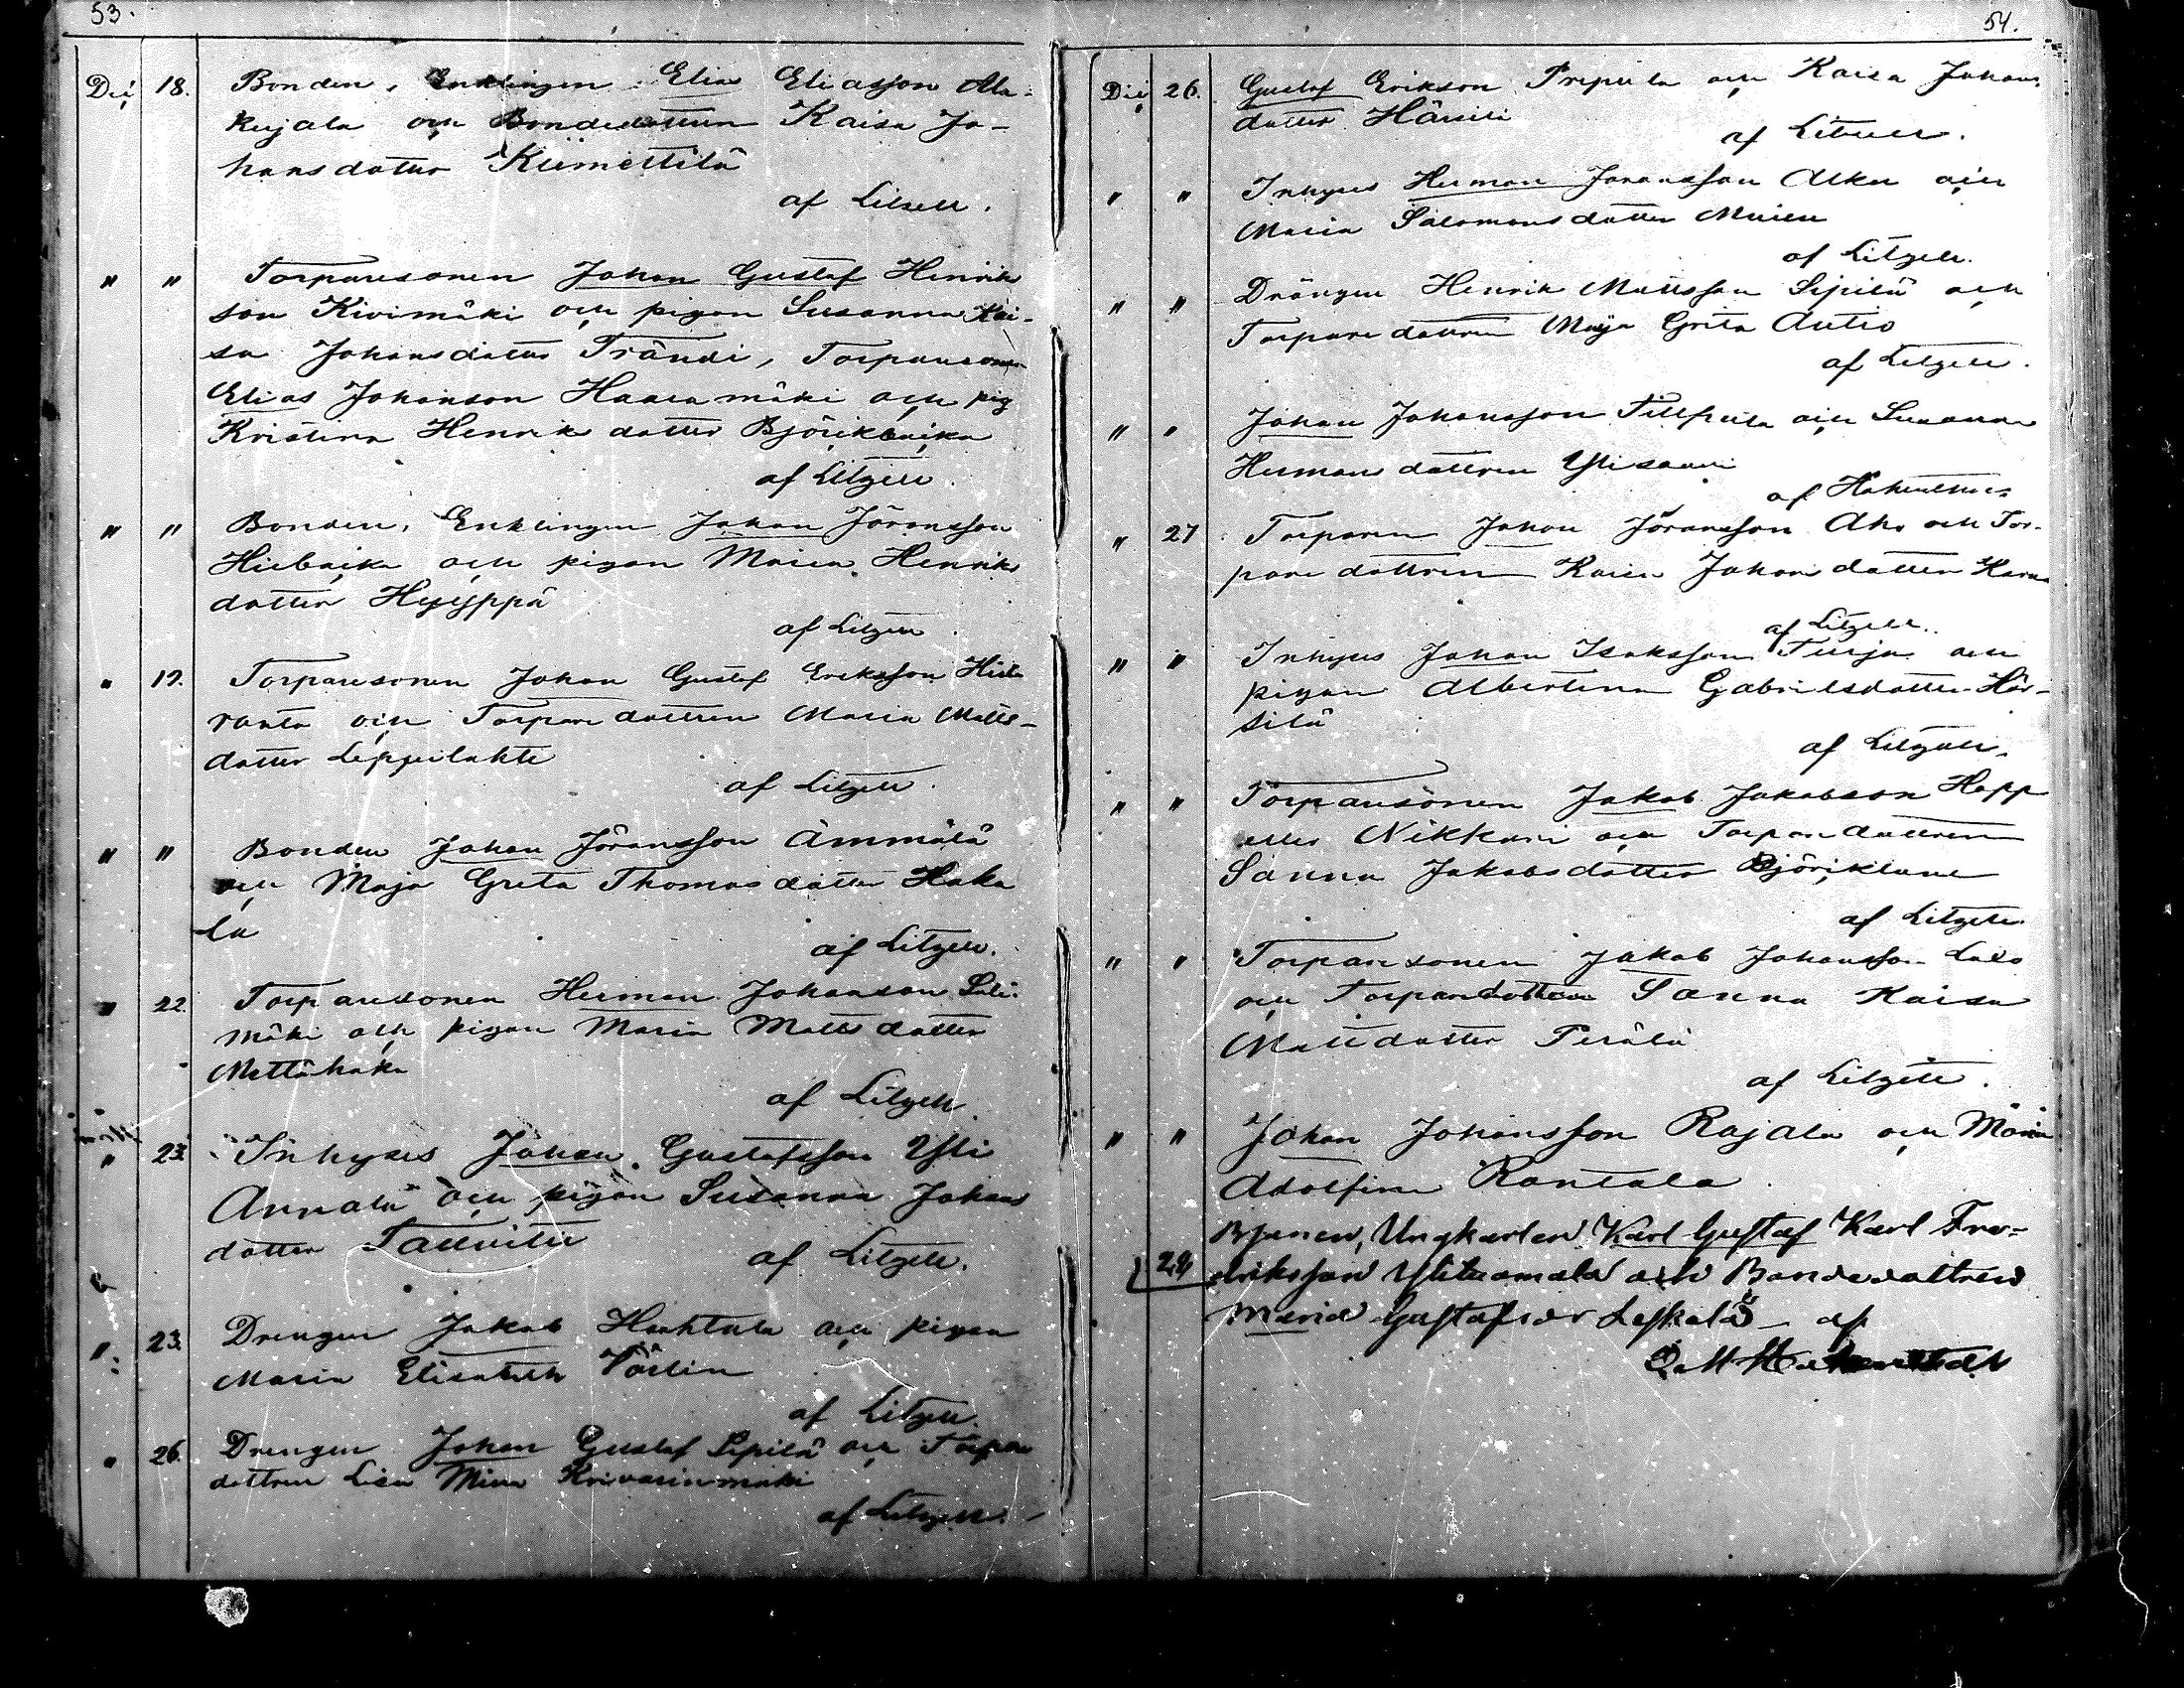 53.
Dec 18. Bonden, Enklingen Elias Eliasson Ala-
kujala och Bondedottren Kaisa Jo-
hansdotter Kiimettilä
af Litzell.
" " Torparesonen Johan Gustaf Henrik
son Kivimäki och pigan Susanna Kai-
sa Johansdotter Trändi, Torparesonen
Elias Johanson Haaramäki och pig
Kristina Henriksdotter Björkbacka
af Litzell.
" " Bonden, Enklingen Johan Jöransson
Hietaika och pigan Maria Henriks
dotter Hyyppä
af Litzell.
" 19. Torparesonen Johan Gustaf Eriksson Hieta
ranta och Torparedottren Maria Matts-
dotter Leppilahti
af Litzell.
" " Bonden Johan Jöransson Ämmälä
och Maja Greta Thomasdotter Haka
la
af Litzell.
" 22. Torparesonen Herman Johanson
mäki och pigan Maria Mattsdotter
Mettähaka
af Litzell.
" 23. Inhyses Johan Gustafsson Yli
Annala och pigan Susanna Johans
dotter
af Litzell.
" 23. Drengen Jakob Hauhtala och pigan
Maria Elisabeth
af Litzell.
" 26. Drengen Johan Gustaf Sipilä och Torpare
dottren Lisa Mina
af Litzell.
54.
Dec 26. Gustaf Erikson Prepula och Kaisa Johans
dotter Härsilä
af Litzell.
" " Inhyses Herman Joransson Alku och
Maria Salomonsdotter
af Litzell.
" " Drängen Henrik Mattsson Sipilä och
Torparedottren Maja Greta Autio
af Litzell.
" " Johan Johansson och Susanna
Hermansdottren Ylisaari
af
" 27 Torparen Johan Jöransson Aho och Tor-
paredottren Kaisa Johansdotter
af Litzell.
" " Inhyses Johan Isaksson Turja och
pigan Albertina Gabrielsdotter Här-
silä
af Litzell.
" " Torparesonen Jakob Jakobsson Hopp
eller Nikkari och Torparedottren
Sanna Jakobsdotter
af Litzell.
" " Torparesonen Jakob Johansson
och Torparedottren Sanna Kaisa
Mattsdotter Perälä
af Litzell.
" " Johan Johansson Rajala och Maria
Adolfina Rantala.
29 Bonden, Ungkarlen Karl Gustaf Karl Fre-
driksson Ylituomala och Bondedottren
Maria Gustafsdr Leskelä af